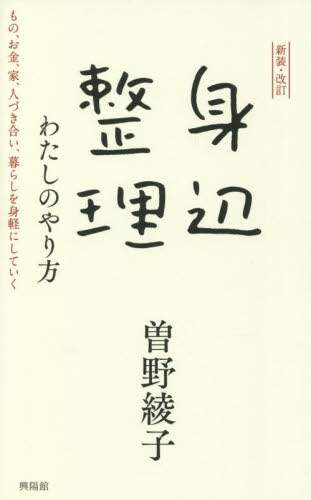 新装・改訂
身辺
整理
わたしのやり方
もの、お金、家、人づき合い、暮らしを身軽にしていく
曽野綾子
興陽館